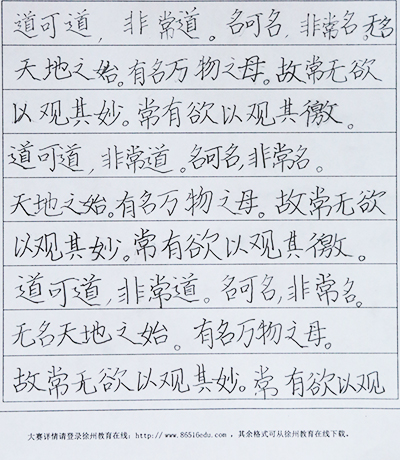 道可道，非常道。名可名，非常名。无名
天地之始。有名万物之母。故常无欲
以观其妙。常有欲以观其徼。
道可道，非常道。名可名，非常名。
天地之始。有名万物之母。故常无欲
以观其妙。常有欲以观其徼。
道可道，非常道。名可名，非常名。
无名天地之始。有名万物之母。
故常无欲以观其妙。常有欲以观
大赛详情请登录徐州教育在线：http://www.86516edu.com ，其余格式可从徐州教育在线下载。